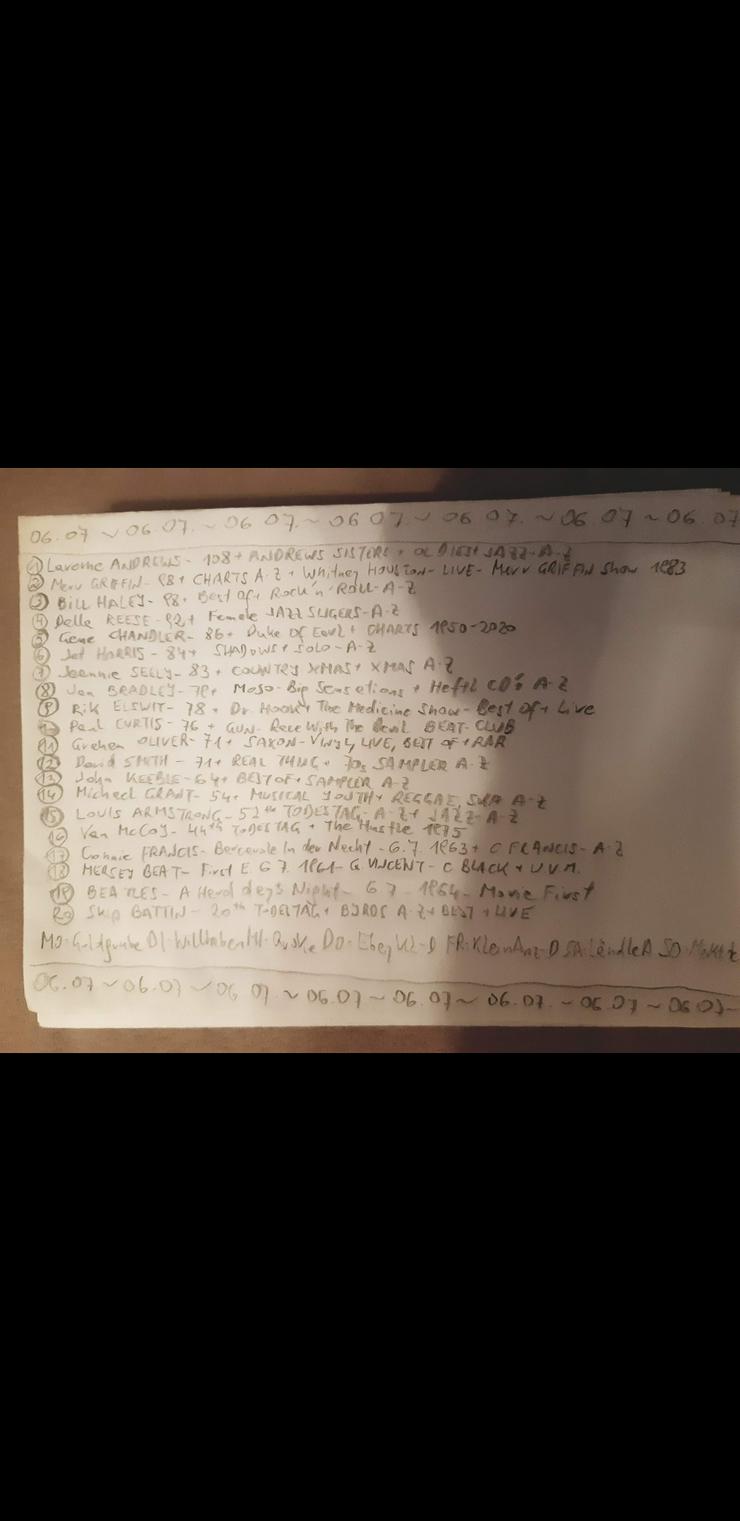 06.07 ~ 06.07. ~ 06 07. ~ 06 07 ~ 06 07 ~ 06.07 ~ 06.07
① Laverne ANDREWS - 108 + ANDREWS SISTERS + OLDIES + JAZZ - A-Z
② Merv GRIFFIN - 98 + CHARTS A-Z + Whitney HOUSTON - LIVE - Merv GRIFFIN Show 1983
③ Bill HALEY - 98 + Best of + Rock'n'ROLL - A-Z
④ Della REESE - 92 + Female JAZZ SINGERS - A-Z
⑤ Gene CHANDLER - 86 + Duke of Earl + CHARTS 1950-2020
⑥ Jet HARRIS - 84 + SHADOWS + SOLO - A-Z
⑦ Jeannie SEELY - 83 + COUNTRY XMAS + XMAS A-Z
⑧ Jan BRADLEY - + Mojo - Big Sensations + Heftl CD's A-Z
⑨ Rik ELSWIT - 78 + Dr. Hook + The Medicine Show - Best of + Live
⑩ Paul CURTIS - 76 + GUN - Race With The Devil BEAT-CLUB
⑪ Graham OLIVER - 71 + SAXON - VINYL, LIVE, BEST OF + RAR
⑫ David SMITH - 71 + REAL THING + 70s SAMPLER A-Z
⑬ John KEEBLE - 64 + BEST OF + SAMPLER A-Z
⑭ Michael GRANT - 54 + MUSICAL YOUTH + REGGAE, SKA A-Z
⑮ LOUIS ARMSTRONG - 52th TODESTAG - A-Z + JAZZ - A-Z
⑯ Van McCOY - 44th TODESTAG + The Hustle 1975
⑰ Connie FRANCIS - Barcarole In der Nacht - 6.7.1963 + C FRANCIS - A-Z
⑱ MERSEY BEAT - First E. 6 7. 1961 - G. VINCENT - C BLACK + U.V.M.
⑲ BEATLES - A Hard day's Night - 6 7 - 1964 - Movie First
⑳ Skip BATTIN - 20th TODESTAG + BYRDS A-Z + BEST + LIVE
MO-Goldgrube DI-Willhaben MI-Quoke DO-EbayKl-D FR-KleinAnz-D SA-LändleA SO-
06.07 ~ 06.07 ~ 06 07 ~ 06.07 ~ 06.07 ~ 06.07. ~ 06.07 ~ 06 07 -